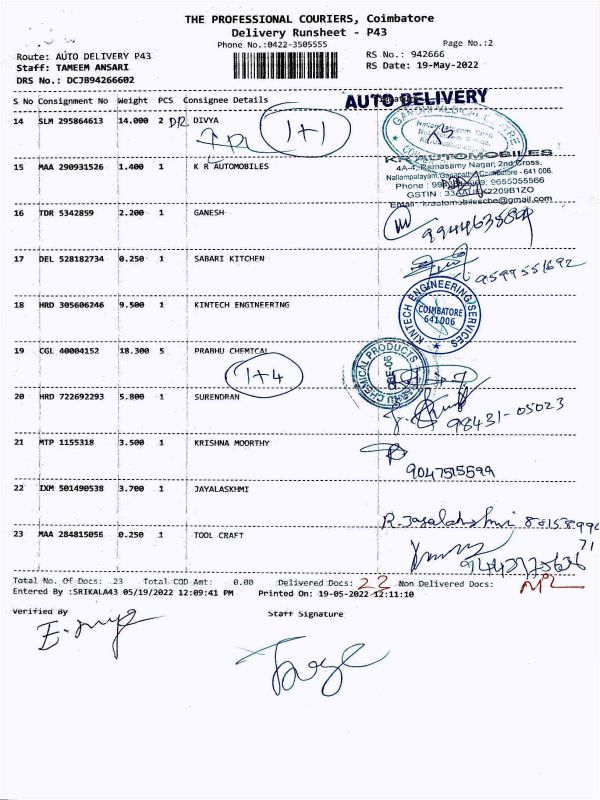 THE PROFESSIONAL COURIERS, Coimbatore
Delivery Runsheet - P43
Phone No.:0422-3505555
Page No.:2
Route: AUTO DELIVERY P43
RS No.: 942666
Staff: TAMEEM ANSARI
RS Date: 19-May-2022
DRS No.: DCJB94266602
S No Consignment No Weight PCS Consignee Details
AUTO DELIVERY
14 SLM 295864613 14.000 2 DIVYA
1+1
15 MAA 290931526 1.400 1 K R AUTOMOBILES
KR AUTOMOBILES
16 TDR 5342859 2.200 1 GANESH
17 DEL 528182734 0.250 1 SABARI KITCHEN
9597551692
18 HRD 305606246 9.500 1 KINTECH ENGINEERING
KINTECH ENGINEERING SERVICES
COIMBATORE
641006
19 CGL 40004152 18.300 5 PRABHU CHEMICAL
1+4
20 HRD 722692293 5.800 1 SURENDRAN
98431-05023
21 MTP 1155318 3.500 1 KRISHNA MOORTHY
9047515599
22 IXM 501490538 3.700 1 JAYALASKHMI
23 MAA 284815056 0.250 1 TOOL CRAFT
Total No. Of Docs: 23 Total COD Amt: 0.00 Delivered Docs: 22 Non Delivered Docs:
Entered By :SRIKALA43 05/19/2022 12:09:41 PM Printed On: 19-05-2022 12:11:10
Verified By Staff Signature